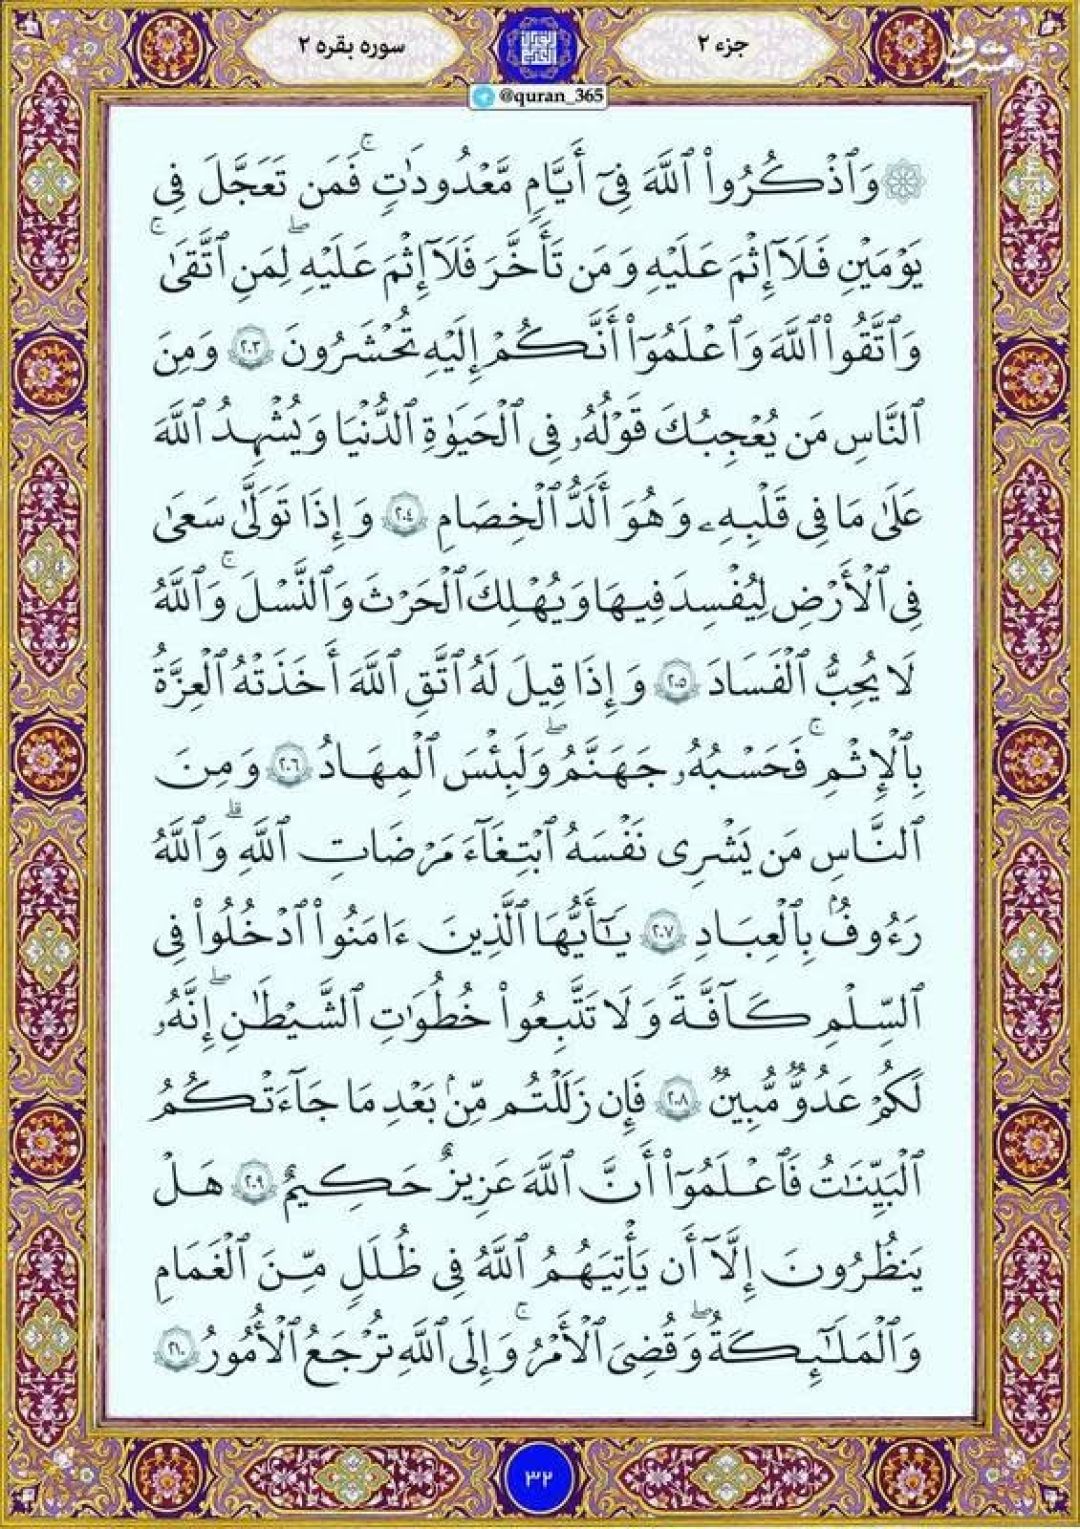 جزء ۲
سوره بقره ۲
@quran_365
۞ وَٱذْكُرُوا۟ ٱللَّهَ فِىٓ أَيَّامٍ مَّعْدُودَٰتٍ ۚ فَمَن تَعَجَّلَ فِى
يَوْمَيْنِ فَلَآ إِثْمَ عَلَيْهِ وَمَن تَأَخَّرَ فَلَآ إِثْمَ عَلَيْهِ ۖ لِمَنِ ٱتَّقَىٰ ۚ
وَٱتَّقُوا۟ ٱللَّهَ وَٱعْلَمُوٓا۟ أَنَّكُمْ إِلَيْهِ تُحْشَرُونَ ٢٠٣ وَمِنَ
ٱلنَّاسِ مَن يُعْجِبُكَ قَوْلُهُۥ فِى ٱلْحَيَوٰةِ ٱلدُّنْيَا وَيُشْهِدُ ٱللَّهَ
عَلَىٰ مَا فِى قَلْبِهِۦ وَهُوَ أَلَدُّ ٱلْخِصَامِ ٢٠٤ وَإِذَا تَوَلَّىٰ سَعَىٰ
فِى ٱلْأَرْضِ لِيُفْسِدَ فِيهَا وَيُهْلِكَ ٱلْحَرْثَ وَٱلنَّسْلَ ۗ وَٱللَّهُ
لَا يُحِبُّ ٱلْفَسَادَ ٢٠٥ وَإِذَا قِيلَ لَهُ ٱتَّقِ ٱللَّهَ أَخَذَتْهُ ٱلْعِزَّةُ
بِٱلْإِثْمِ ۚ فَحَسْبُهُۥ جَهَنَّمُ ۖ وَلَبِئْسَ ٱلْمِهَادُ ٢٠٦ وَمِنَ
ٱلنَّاسِ مَن يَشْرِى نَفْسَهُ ٱبْتِغَآءَ مَرْضَاتِ ٱللَّهِ ۗ وَٱللَّهُ
رَءُوفٌۢ بِٱلْعِبَادِ ٢٠٧ يَٰٓأَيُّهَا ٱلَّذِينَ ءَامَنُوا۟ ٱدْخُلُوا۟ فِى
ٱلسِّلْمِ كَآفَّةً وَلَا تَتَّبِعُوا۟ خُطُوَٰتِ ٱلشَّيْطَٰنِ ۖ إِنَّهُۥ
لَكُمْ عَدُوٌّ مُّبِينٌ ٢٠٨ فَإِن زَلَلْتُم مِّنۢ بَعْدِ مَا جَآءَتْكُمُ
ٱلْبَيِّنَٰتُ فَٱعْلَمُوٓا۟ أَنَّ ٱللَّهَ عَزِيزٌ حَكِيمٌ ٢٠٩ هَلْ
يَنظُرُونَ إِلَّآ أَن يَأْتِيَهُمُ ٱللَّهُ فِى ظُلَلٍ مِّنَ ٱلْغَمَامِ
وَٱلْمَلَٰٓئِكَةُ وَقُضِىَ ٱلْأَمْرُ ۚ وَإِلَى ٱللَّهِ تُرْجَعُ ٱلْأُمُورُ ٢١٠
۳۲